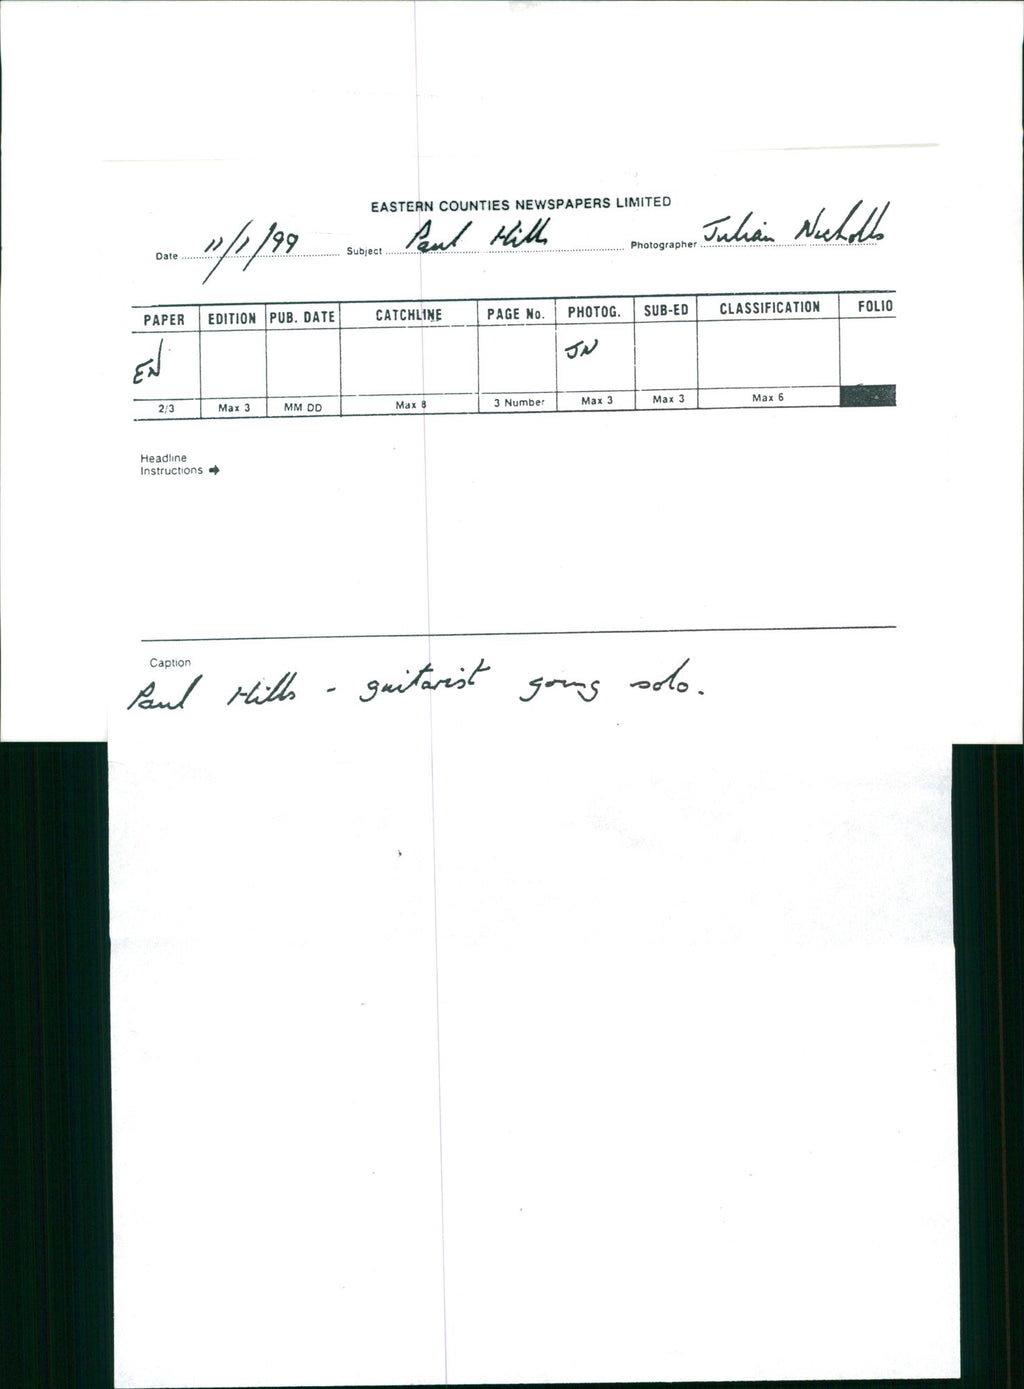 EASTERN COUNTIES NEWSPAPERS LIMITED
Date 11/1/99 Subject Paul Hills Photographer Julian Nicholls
PAPER EDITION PUB. DATE CATCHLINE PAGE No. PHOTOG. SUB-ED CLASSIFICATION FOLIO
EN JN
2/3 Max 3 MM DD Max 8 3 Number Max 3 Max 3 Max 6
Headline
Instructions →
Caption
Paul Hills - guitarist going solo.